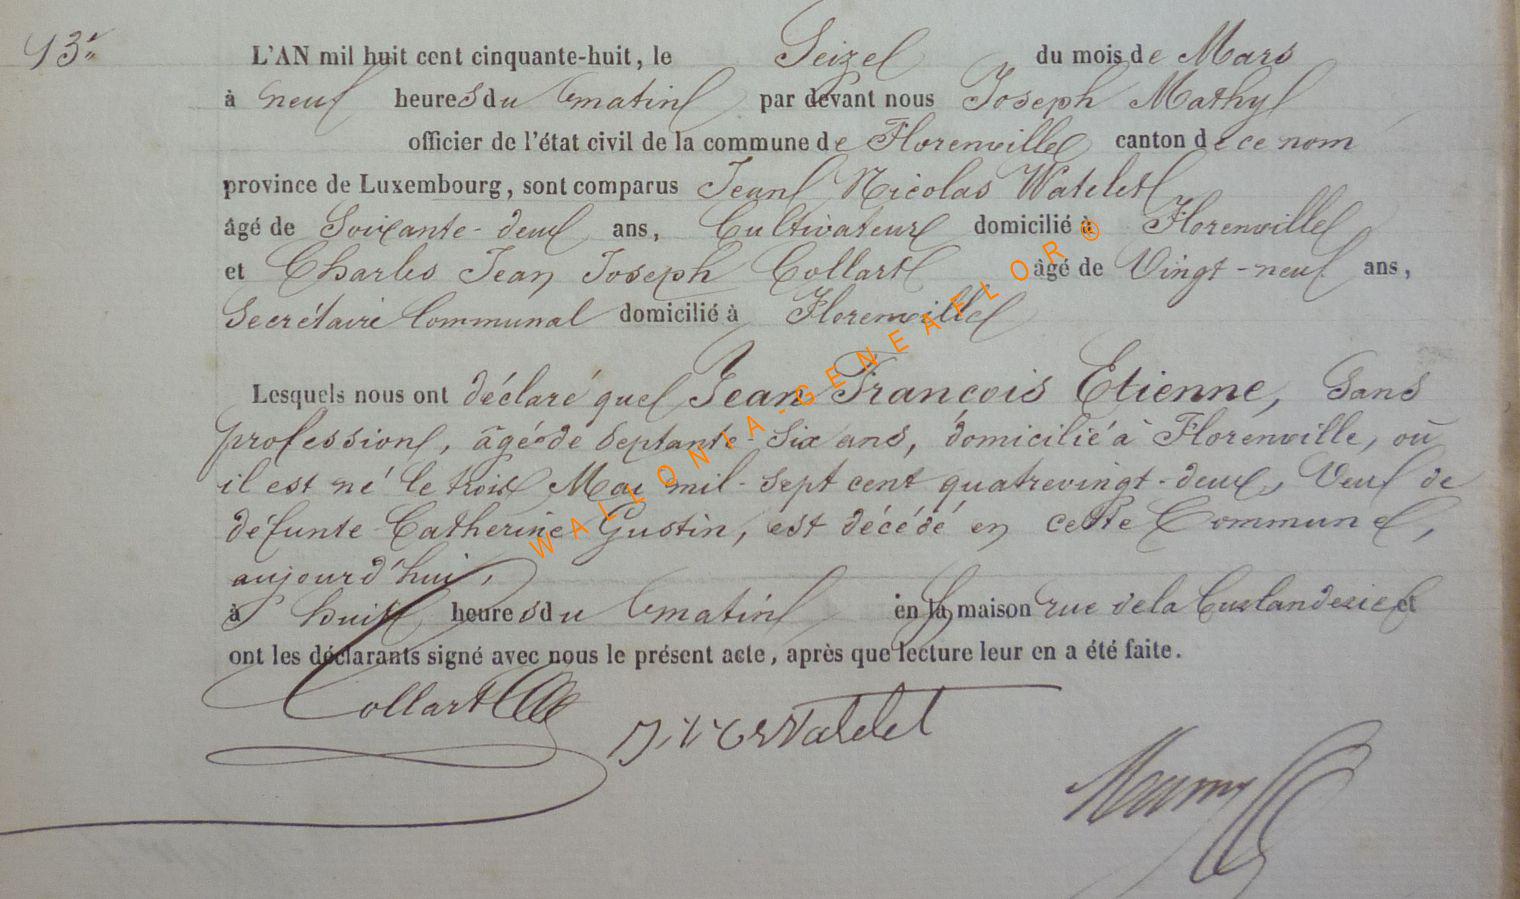 13.
L'AN mil huit cent cinquante-huit, le Seize du mois de Mars
à neuf heures du matin par devant nous Joseph Mathy
officier de l'état civil de la commune de Florenville canton de ce nom
province de Luxembourg, sont comparus Jean Nicolas Watelet
âgé de Soixante-deux ans, Cultivateur domicilié à Florenville
et Charles Jean Joseph Collart âgé de Vingt-neuf ans,
Secrétaire Communal domicilié à Florenville
Lesquels nous ont déclaré que Jean François Etienne, Sans
profession, âgé de septante-six ans, domicilié à Florenville, où
il est né le trois Mai mil-sept cent quatrevingt-deux, Veuf de
défunte Catherine Gustin, est décédé en cette Commune,
aujourd'hui,
à huit heures du matin en la maison rue de la Cuslanderie et
ont les déclarants signé avec nous le présent acte, après que lecture leur en a été faite.
Collart
Watelet
WALLONIA-GENEAFLOR©